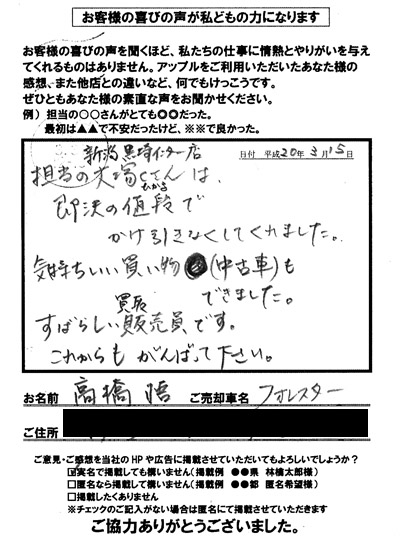 お客様の喜びの声が私どもの力になります
お客様の喜びの声を聞くほど、私たちの仕事に情熱とやりがいを与え
てくれるものはありません。アップルをご利用いただいたあなた様の
感想、また他店との違いなど、何でもけっこうです。
ぜひともあなた様の素直な声をお聞かせください。
例）担当の○○さんがとても◎◎だった。
最初は▲▲で不安だったけど、※※で良かった。
新潟黒埼インター店
日付 平成20年3月15日
担当の犬塚さんは、
即決の値段で
かけ引きなくしてくれました。
気持ちいい買い物(中古車)も
できました。
買取
すばらしい販売員です。
これからもがんばって下さい。
お名前 高橋 悟 ご売却車名 フォレスター
ご住所
ご意見・ご感想を当社のHPや広告に掲載させていただいてもよろしいでしょうか？
☑実名で掲載しても構いません（掲載例 ●●県 林檎太郎様）
□匿名なら掲載して構いません（掲載例 ●●都 匿名希望様）
□掲載したくありません
※チェックのご記入がない場合は匿名にて掲載させていただきます
ご協力ありがとうございました。